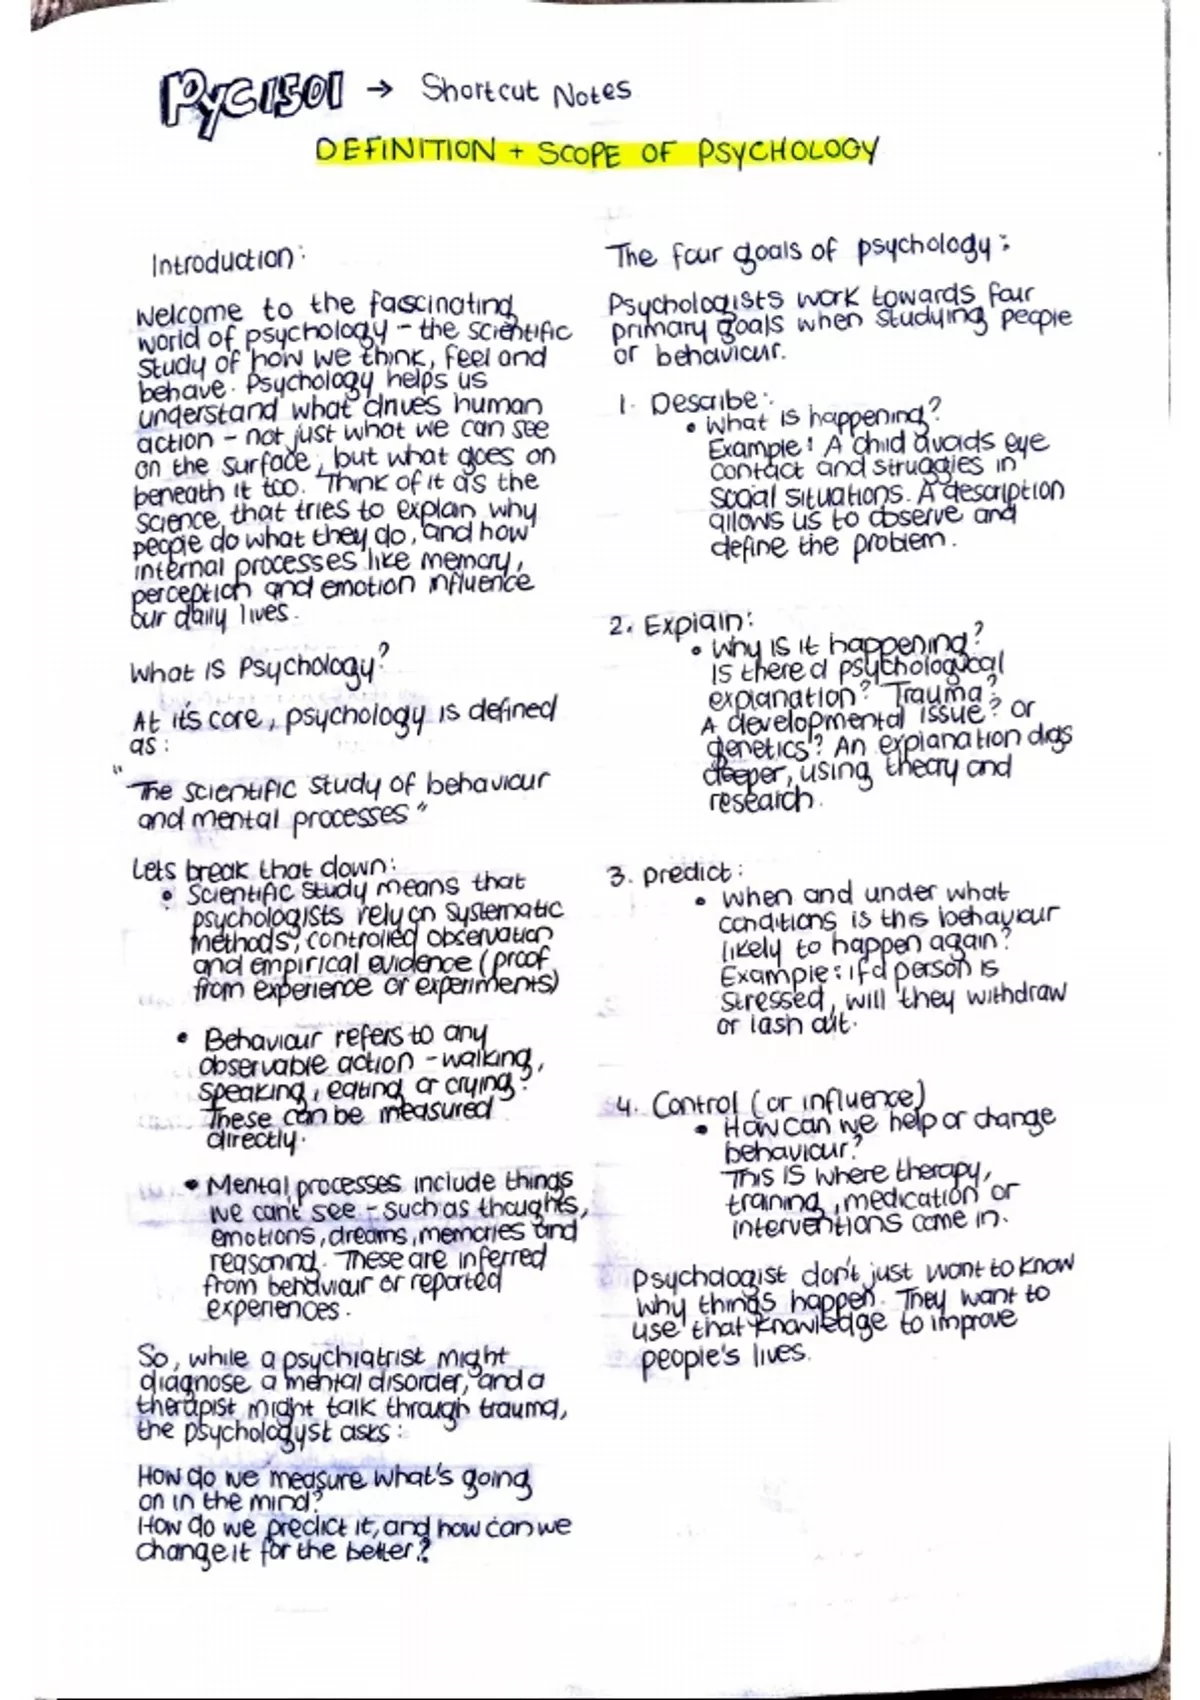 PYC1501 → Shortcut Notes
DEFINITION + SCOPE OF PSYCHOLOGY
Introduction:
Welcome to the fascinating
world of psychology - the scientific
study of how we think, feel and
behave. Psychology helps us
understand what drives human
action - not just what we can see
on the surface, but what goes on
beneath it too. Think of it as the
science that tries to explain why
people do what they do, and how
internal processes like memory,
perception and emotion influence
our daily lives.
What is Psychology?
At it's core, psychology is defined
as:
"The scientific study of behaviour
and mental processes"
Lets break that down:
• Scientific study means that
psychologists rely on systematic
methods, controlled observation
and empirical evidence (proof
from experience or experiments)
• Behaviour refers to any
observable action - walking,
speaking, eating or crying.
These can be measured
directly.
• Mental processes include things
we can't see - such as thoughts,
emotions, dreams, memories and
reasoning. These are inferred
from behaviour or reported
experiences.
So, while a psychiatrist might
diagnose a mental disorder, and a
therapist might talk through trauma,
the psychologyst asks:
How do we measure what's going
on in the mind?
How do we predict it, and how can we
change it for the better?
The four goals of psychology:
Psychologists work towards four
primary goals when studying people
or behaviour.
1. Describe:
• What is happening?
Example: A child avoids eye
contact and struggles in
social situations. A description
allows us to observe and
define the problem.
2. Explain:
• Why is it happening?
Is there a psychological
explanation? Trauma?
A developmental issue? or
genetics? An explanation digs
deeper, using theory and
research.
3. predict:
• When and under what
conditions is this behaviour
likely to happen again?
Example: if a person is
stressed, will they withdraw
or lash out.
4. Control (or influence)
• How can we help or change
behaviour?
This is where therapy,
training, medication or
interventions come in.
Psychologist don't just want to know
why things happen. They want to
use that knowledge to improve
people's lives.